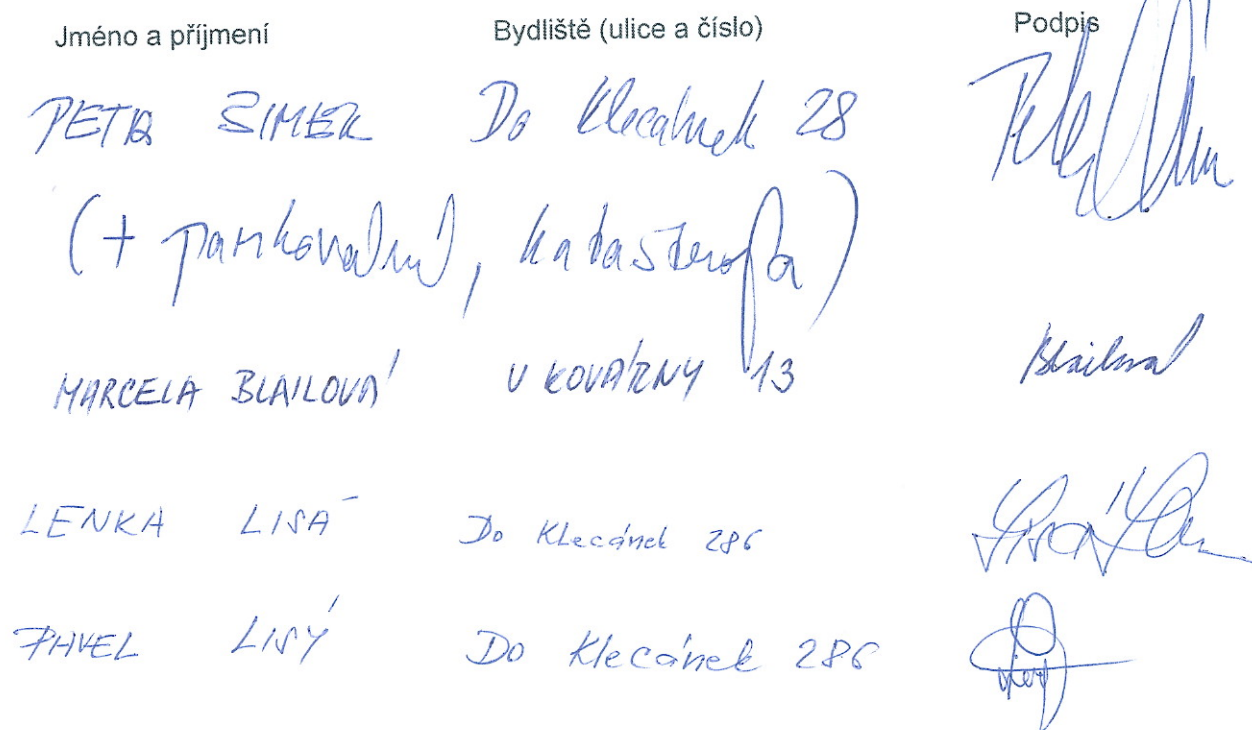 Jméno a příjmení Bydliště (ulice a číslo) Podpis
PETR ŠIMEK Do Klecánek 28
(+ parkování, katastrofa)
MARCELA BLAILOVÁ U KOVÁRNY 13 Blailová
LENKA LISÁ Do Klecánek 286 Lisá
PAVEL LISÝ Do Klecánek 286